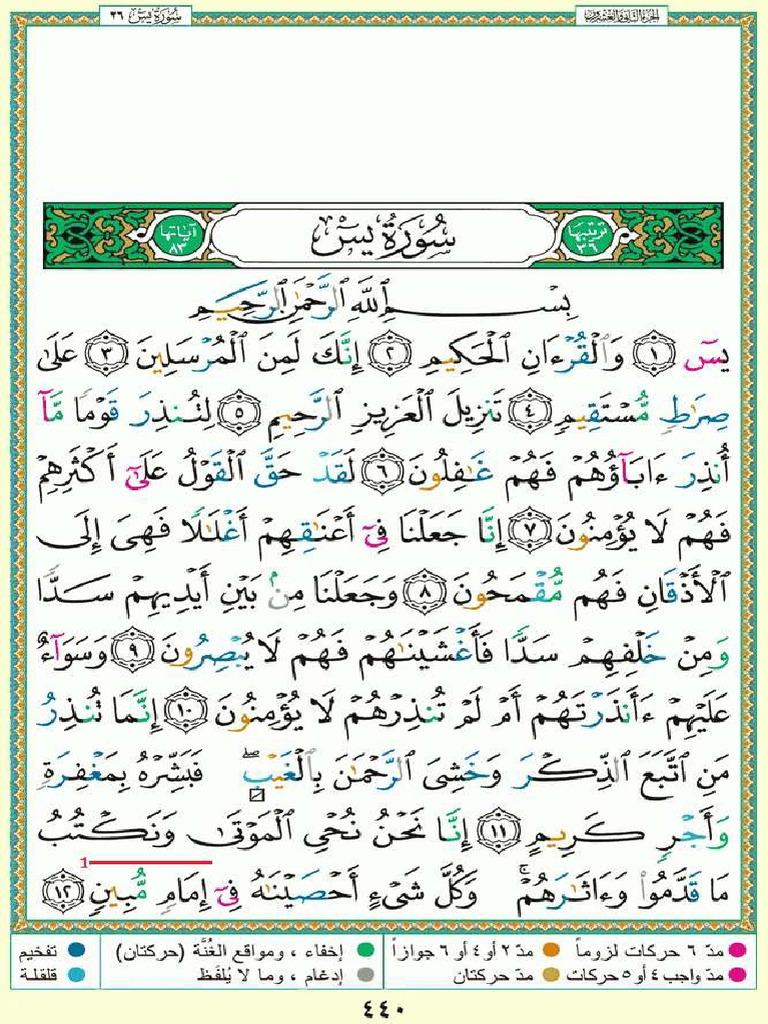 الجزء الثاني والعشرون
سُورَةُ يسٓ ٣٦
ترتيبها ٣٦ سُورَةُ يسٓ آياتها ٨٣
بِسْمِ ٱللَّهِ ٱلرَّحْمَٰنِ ٱلرَّحِيمِ
يسٓ ١ وَٱلْقُرْءَانِ ٱلْحَكِيمِ ٢ إِنَّكَ لَمِنَ ٱلْمُرْسَلِينَ ٣ عَلَىٰ
صِرَٰطٍ مُّسْتَقِيمٍ ٤ تَنزِيلَ ٱلْعَزِيزِ ٱلرَّحِيمِ ٥ لِتُنذِرَ قَوْمًا مَّآ
أُنذِرَ ءَابَآؤُهُمْ فَهُمْ غَٰفِلُونَ ٦ لَقَدْ حَقَّ ٱلْقَوْلُ عَلَىٰٓ أَكْثَرِهِمْ
فَهُمْ لَا يُؤْمِنُونَ ٧ إِنَّا جَعَلْنَا فِىٓ أَعْنَٰقِهِمْ أَغْلَٰلًا فَهِىَ إِلَى
ٱلْأَذْقَانِ فَهُم مُّقْمَحُونَ ٨ وَجَعَلْنَا مِنۢ بَيْنِ أَيْدِيهِمْ سَدًّا
وَمِنْ خَلْفِهِمْ سَدًّا فَأَغْشَيْنَٰهُمْ فَهُمْ لَا يُبْصِرُونَ ٩ وَسَوَآءٌ
عَلَيْهِمْ ءَأَنذَرْتَهُمْ أَمْ لَمْ تُنذِرْهُمْ لَا يُؤْمِنُونَ ١٠ إِنَّمَا تُنذِرُ
مَنِ ٱتَّبَعَ ٱلذِّكْرَ وَخَشِىَ ٱلرَّحْمَٰنَ بِٱلْغَيْبِ ۖ فَبَشِّرْهُ بِمَغْفِرَةٍ
وَأَجْرٍ كَرِيمٍ ١١ إِنَّا نَحْنُ نُحْىِ ٱلْمَوْتَىٰ وَنَكْتُبُ
1
مَا قَدَّمُوا۟ وَءَاثَٰرَهُمْ ۚ وَكُلَّ شَىْءٍ أَحْصَيْنَٰهُ فِىٓ إِمَامٍ مُّبِينٍ ١٢
مدّ ٦ حركات لزوماً مدّ ٢ أو ٤ أو ٦ جوازاً إخفاء ، ومواقع الغُنَّة (حركتان) تفخيم
مدّ واجب ٤ أو ٥ حركات مدّ حركتان إدغام ، وما لا يُلفَظ قلقلة
٤٤٠